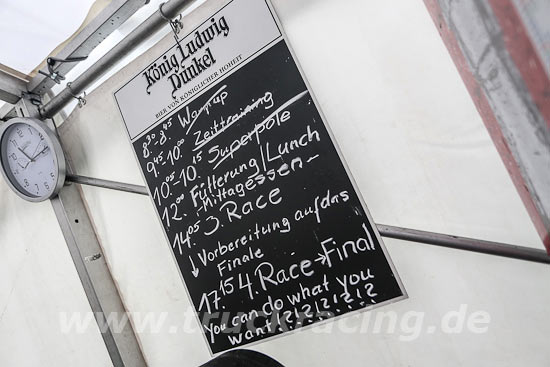 König Ludwig
Dunkel
BIER VON KÖNIGLICHER HOHEIT
8³⁰-8⁴⁵ Warmup
9⁴⁵-10⁰⁰ Zeittraining
10⁰⁵-10¹⁵ Superpole
12⁰⁰ Fütterung/Lunch
-Mittagessen-
14⁰⁵ 3. Race
↓ Vorbereitung auf das
Finale
17¹⁵ 4. Race→Final
You can do what you
want
© www.truckracing.de